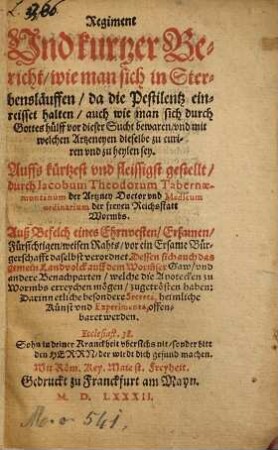 Regiment
Und kurtzer Be-
richt/ wie man sich in Ster-
bensläuffen/ da die Pestilentz ein-
reisset halten/ auch wie man sich durch
Gottes hülff vor dieser Sucht bewaren/ vnd mit
welchen Artzeneyen dieselbe zu curi-
ren vnd zu heylen sey.
Auffs kürtzest vnd fleissigst gestellt/
durch Iacobum Theodorum Tabernæ-
montanum der Artzney Doctor vnd Medicum
ordinarium der freyen Reichsstatt
Wormbs.
Auß Befelch eines Ehrnvesten/ Ersamen/
Fürsichtigen/ weisen Rahts/ vor ein Ersame Bür-
gerschafft daselbst verordnet/ Dessen sich auch das
gemein Landvolck auff dem Wormser Gaw/ vnd
andere Benachparten/ welche die Apotecken zu
Wormbs erreychen mögen/ zugetrösten haben:
Darinn etliche besondere Secreta, heimliche
Künst vnd Experimenta, offen-
baret werden.
Ecclesiast. 38.
Sohn in deiner Kranckheit vbersihs nit/ sonder bitt
den HERRN/ der wirdt dich gesund machen.
Mit Röm. Key. Maiest. Freyheit.
Gedruckt zu Franckfurt am Mayn.
M. D. LXXXII.
M. o. 541,